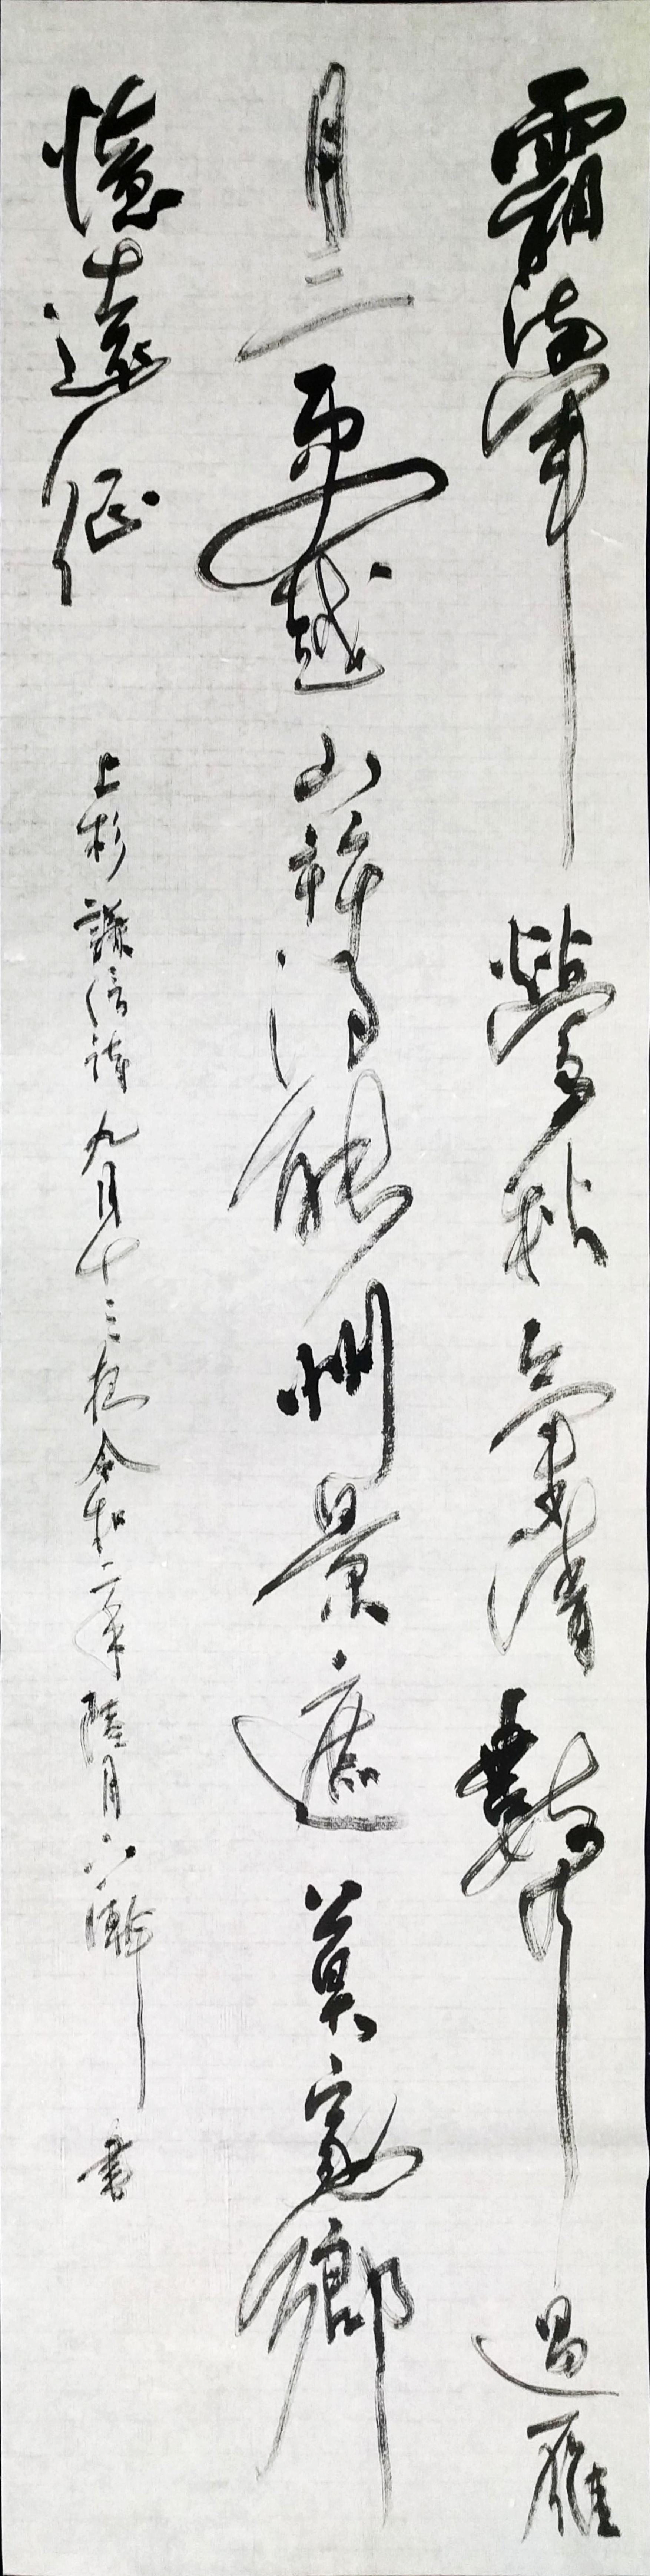 霜満軍営秋気清数行過雁
月三更越山併得能州景遮莫家郷
憶遠征
上杉謙信詩九月十三夜令和二年陸月六瀞書